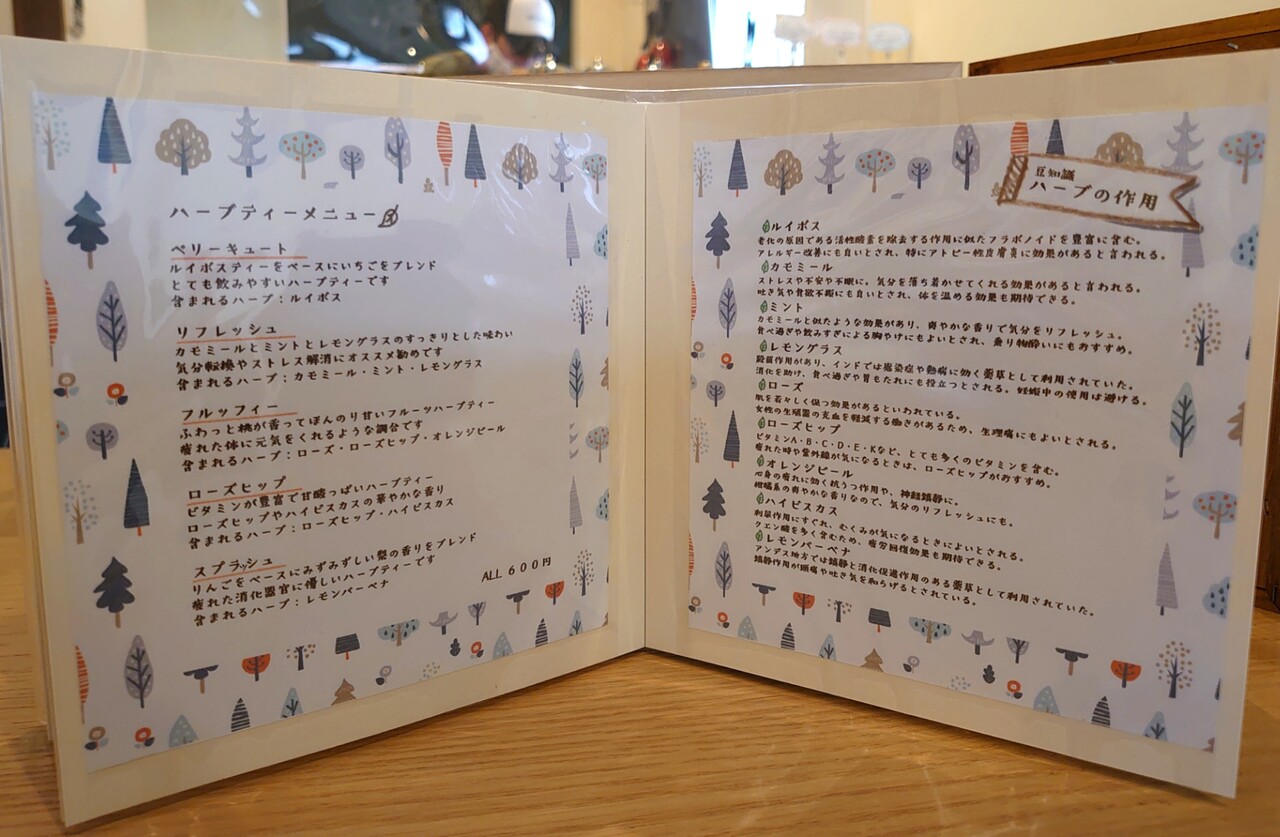 ハーブティーメニュー
ベリーキュート
ルイボスティーをベースにいちごをブレンド
とても飲みやすいハーブティーです
含まれるハーブ：ルイボス
リフレッシュ
カモミールとミントとレモングラスのすっきりとした味わい
気分転換やストレス解消にオススメ勧めです
含まれるハーブ：カモミール・ミント・レモングラス
フルッフィー
ふわっと桃が香ってほんのり甘いフルーツハーブティー
疲れた体に元気をくれるような調合です
含まれるハーブ：ローズ・ローズヒップ・オレンジピール
ローズヒップ
ビタミンが豊富で甘酸っぱいハーブティー
ローズヒップやハイビスカスの華やかな香り
含まれるハーブ：ローズヒップ・ハイビスカス
スプラッシュ
りんごをベースにみずみずしい梨の香りをブレンド
疲れた消化器官に優しいハーブティーです
含まれるハーブ：レモンバーベナ
ALL 600円
豆知識
ハーブの作用
ルイボス
老化の原因である活性酸素を除去する作用に似たフラボノイドを豊富に含む。
アレルギー改善にも良いとされ、特にアトピー性皮膚炎に効果があると言われる。
カモミール
ストレスや不安や不眠に。気分を落ち着かせてくれる効果があると言われる。
吐き気や食欲不振にも良いとされ、体を温める効果も期待できる。
ミント
カモミールと似たような効果があり、爽やかな香りで気分をリフレッシュ。
食べ過ぎや飲みすぎによる胸やけにもよいとされ、乗り物酔いにもおすすめ。
レモングラス
殺菌作用があり、インドでは感染症や熱病に効く薬草として利用されていた。
消化を助け、食べ過ぎや胃もたれにも役立つとされる。妊娠中の使用は避ける。
ローズ
肌を若々しく保つ効果があるといわれている。
女性の生殖器の充血を軽減する働きがあるため、生理痛にもよいとされる。
ローズヒップ
ビタミンA・B・C・D・E・Kなど、とても多くのビタミンを含む。
疲れた時や紫外線が気になるときは、ローズヒップがおすすめ。
オレンジピール
心身の疲れに効く抗うつ作用や、神経鎮静に。
柑橘系の爽やかな香りなので、気分のリフレッシュにも。
ハイビスカス
利尿作用にすぐれ、むくみが気になるときによいとされる。
クエン酸を多く含むため、疲労回復効果も期待できる。
レモンバーベナ
アンデス地方では鎮静と消化促進作用のある薬草として利用されていた。
鎮静作用が頭痛や吐き気を和らげるとされている。